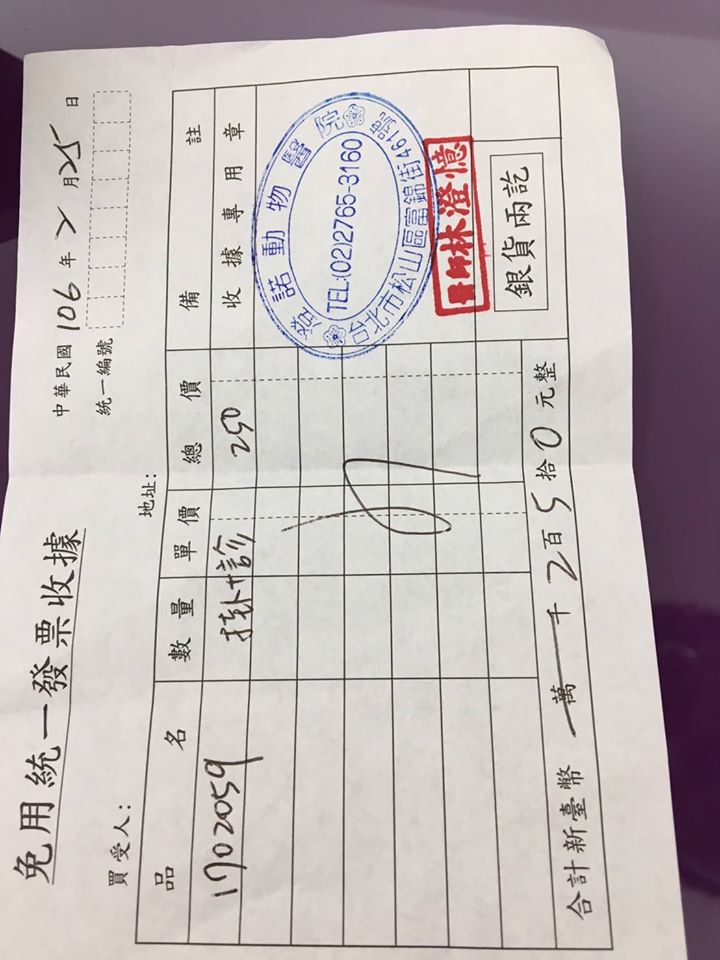 免用統一發票收據
中華民國 106 年 2 月 25 日
統一編號
買受人：
地址：
品名 數量 單價 總價 備註
1702059 掛+診 250
收據專用章
諾動物醫院
TEL:(02)2765-3160
台北市松山區富錦街461號
醫師林澄憶
銀貨兩訖
合計新臺幣 萬 千 2 百 5 拾 0 元整